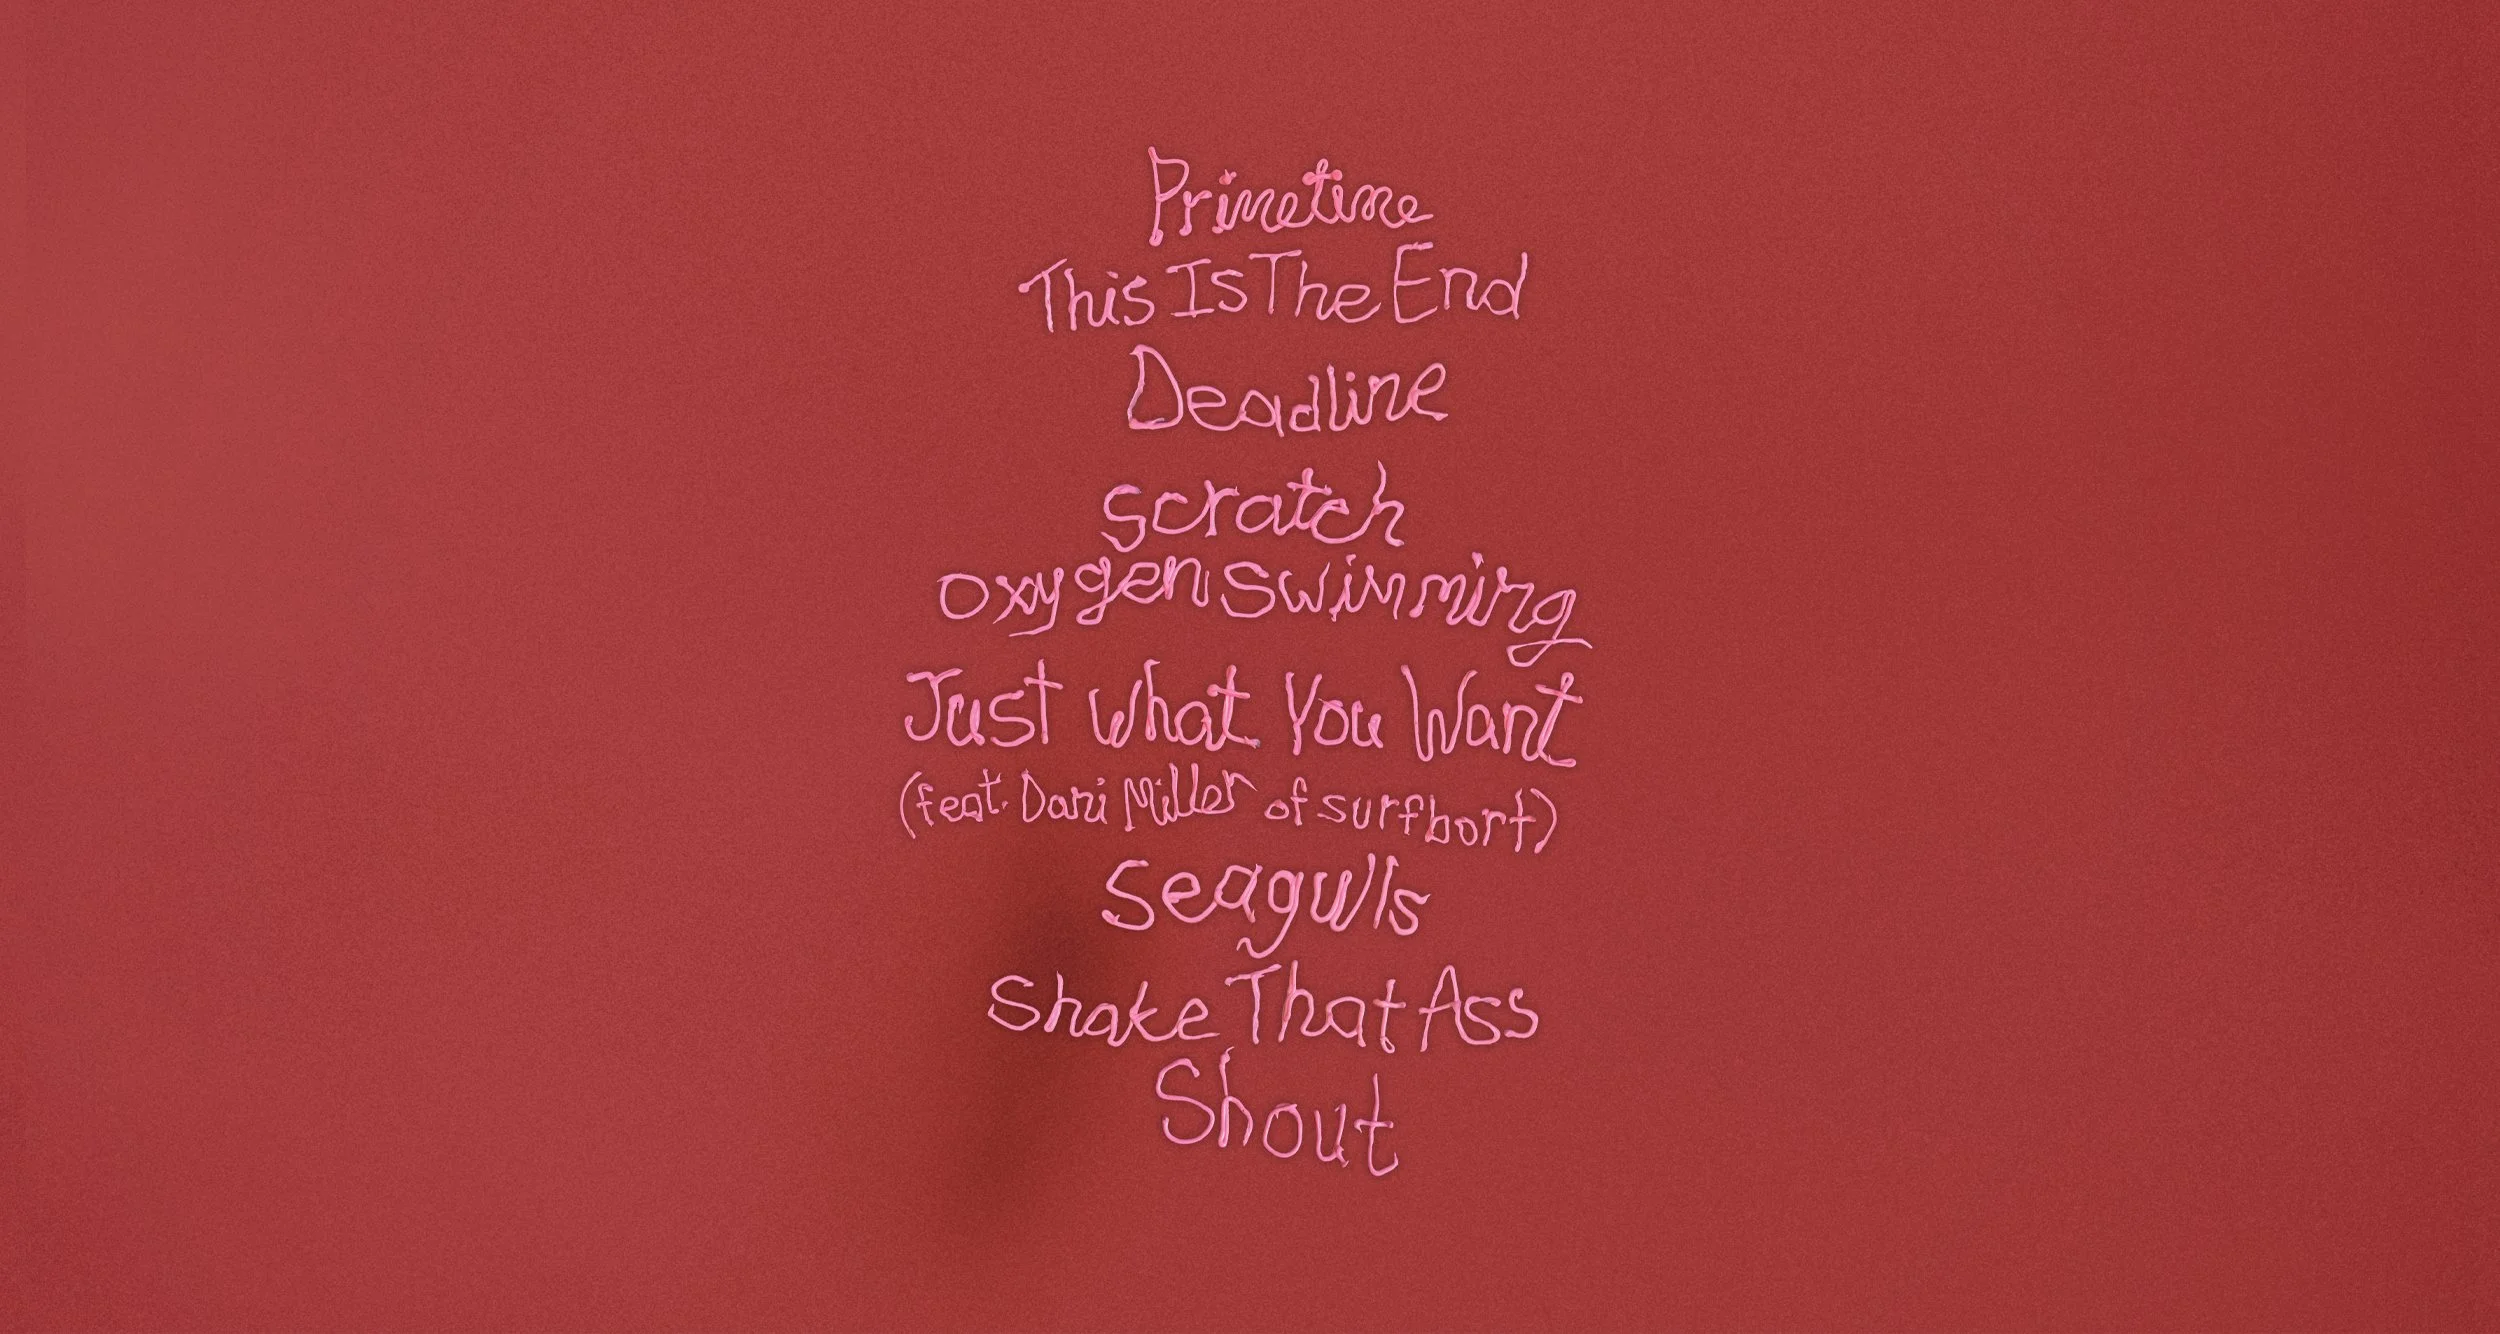 Primetime
This Is The End
Deadline
scratch
oxygen swimming
Just What You Want
(feat. Dani Miller of surfbort)
Seagulls
Shake That Ass
Shout